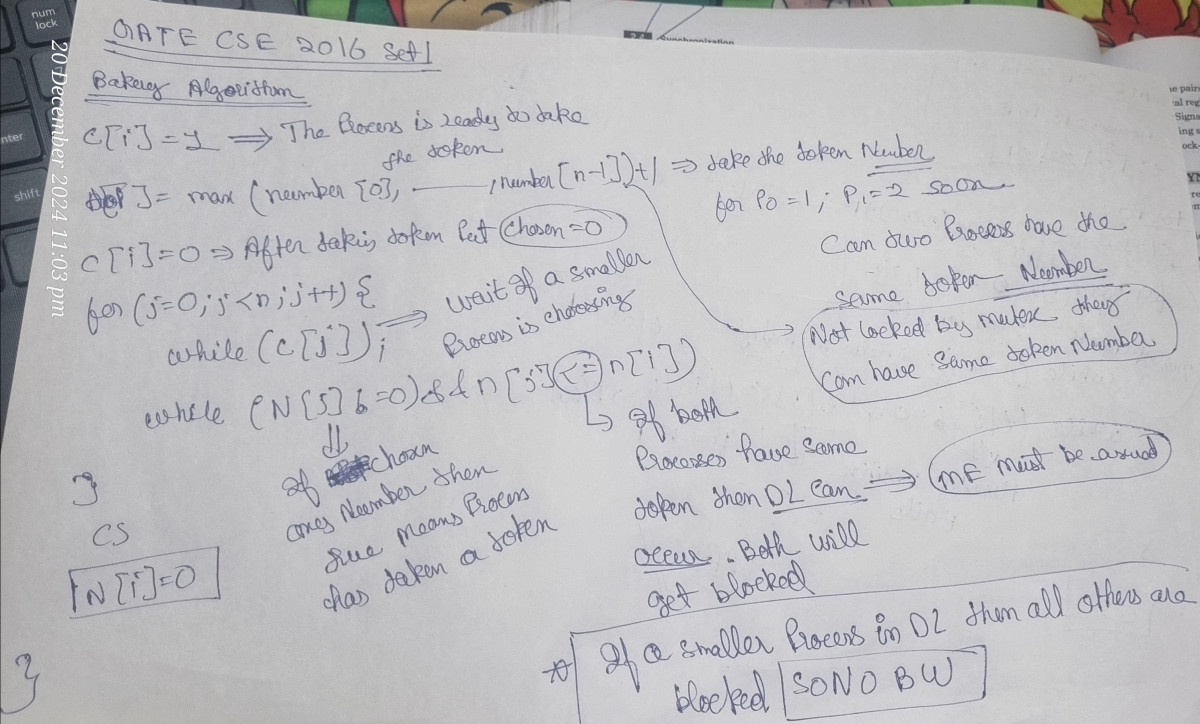 20 December 2024 11:03 pm
num lock
enter
shift
GATE CSE 2016 Set 1
Bakery Algorithm
C[i]=1 ⇒ The Process is ready to take
the token
]= max (number [0], ——— , number [n-1])+1 ⇒ take the token Number
for P0 =1; P1=2 so on
C[i]=0 ⇒ After taking token Put chosen=0
Can two Process have the
same token Number
for (j=0; j<n; j++) {
Not locked by mutex they
can have same token Number
while (C[j]); ⇒ wait if a smaller
Process is choosing
while (N[j] !=0) && n[j] <= n[i])
If chosen
ones Number then
true means Process
has taken a token
If both
Processes have same
token then DL can ⇒ ME must be
occur. Both will
get blocked
}
CS
N[i]=0
}
If a smaller Process in DL then all others are
blocked SO NO BW